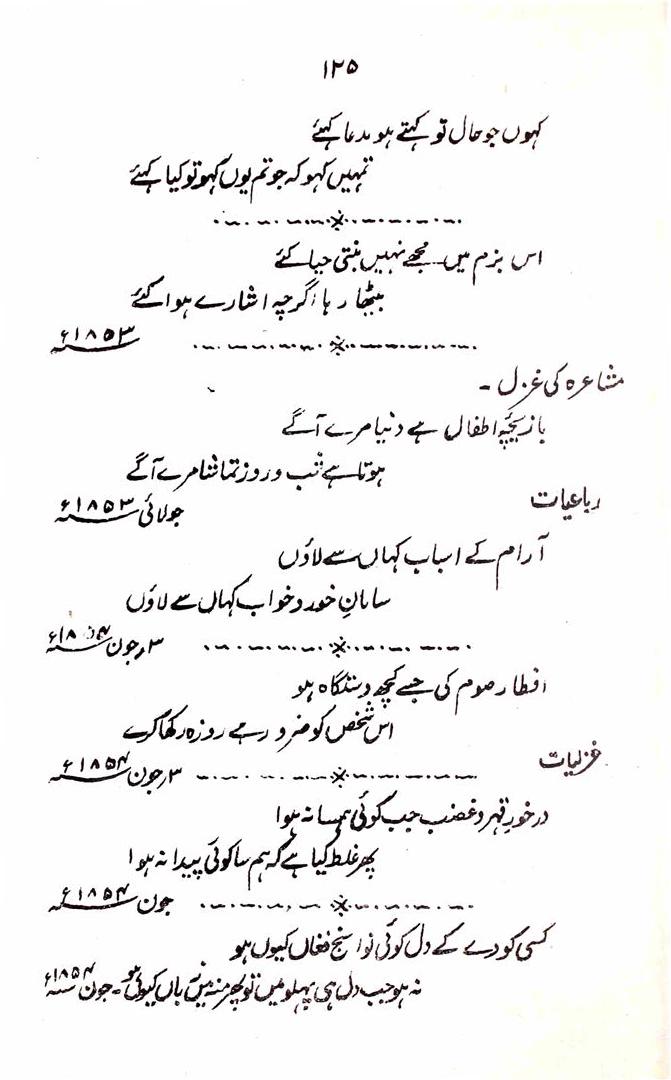 ۱۲۵
کہوں جو حال تو کہتے ہو مدعا کہئے
تمہیں کہو کہ جو تم یوں کہو تو کیا کہئے
اس بزم میں مجھے نہیں بنتی حیا کئے
بیٹھا رہا اگرچہ اشارے ہوا کئے
سنہ ۱۸۵۳ء
مشاعرہ کی غزل -
بازیچۂ اطفال ہے دنیا مرے آگے
ہوتا ہے شب و روز تماشا مرے آگے
جولائی سنہ ۱۸۵۳ء
رباعیات
آرام کے اسباب کہاں سے لاؤں
سامانِ خور و خواب کہاں سے لاؤں
۳؍ جون سنہ ۱۸۵۴ء
افطار صوم کی جسے کچھ دستگاہ ہو
اس شخص کو ضرور ہے روزہ رکھا کرے
۳؍ جون سنہ ۱۸۵۴ء
غزلیات
درخورِ قہر و غضب جب کوئی ہمسا نہ ہوا
پھر غلط کیا ہے کہ ہم سا کوئی پیدا نہ ہوا
جون سنہ ۱۸۵۴ء
کسی کو دے کے دل کوئی نوا سنج فغاں کیوں ہو
نہ ہو جب دل ہی پہلو میں تو پھر منہ میں زباں کیوں ہو - جون سنہ ۱۸۵۴ء